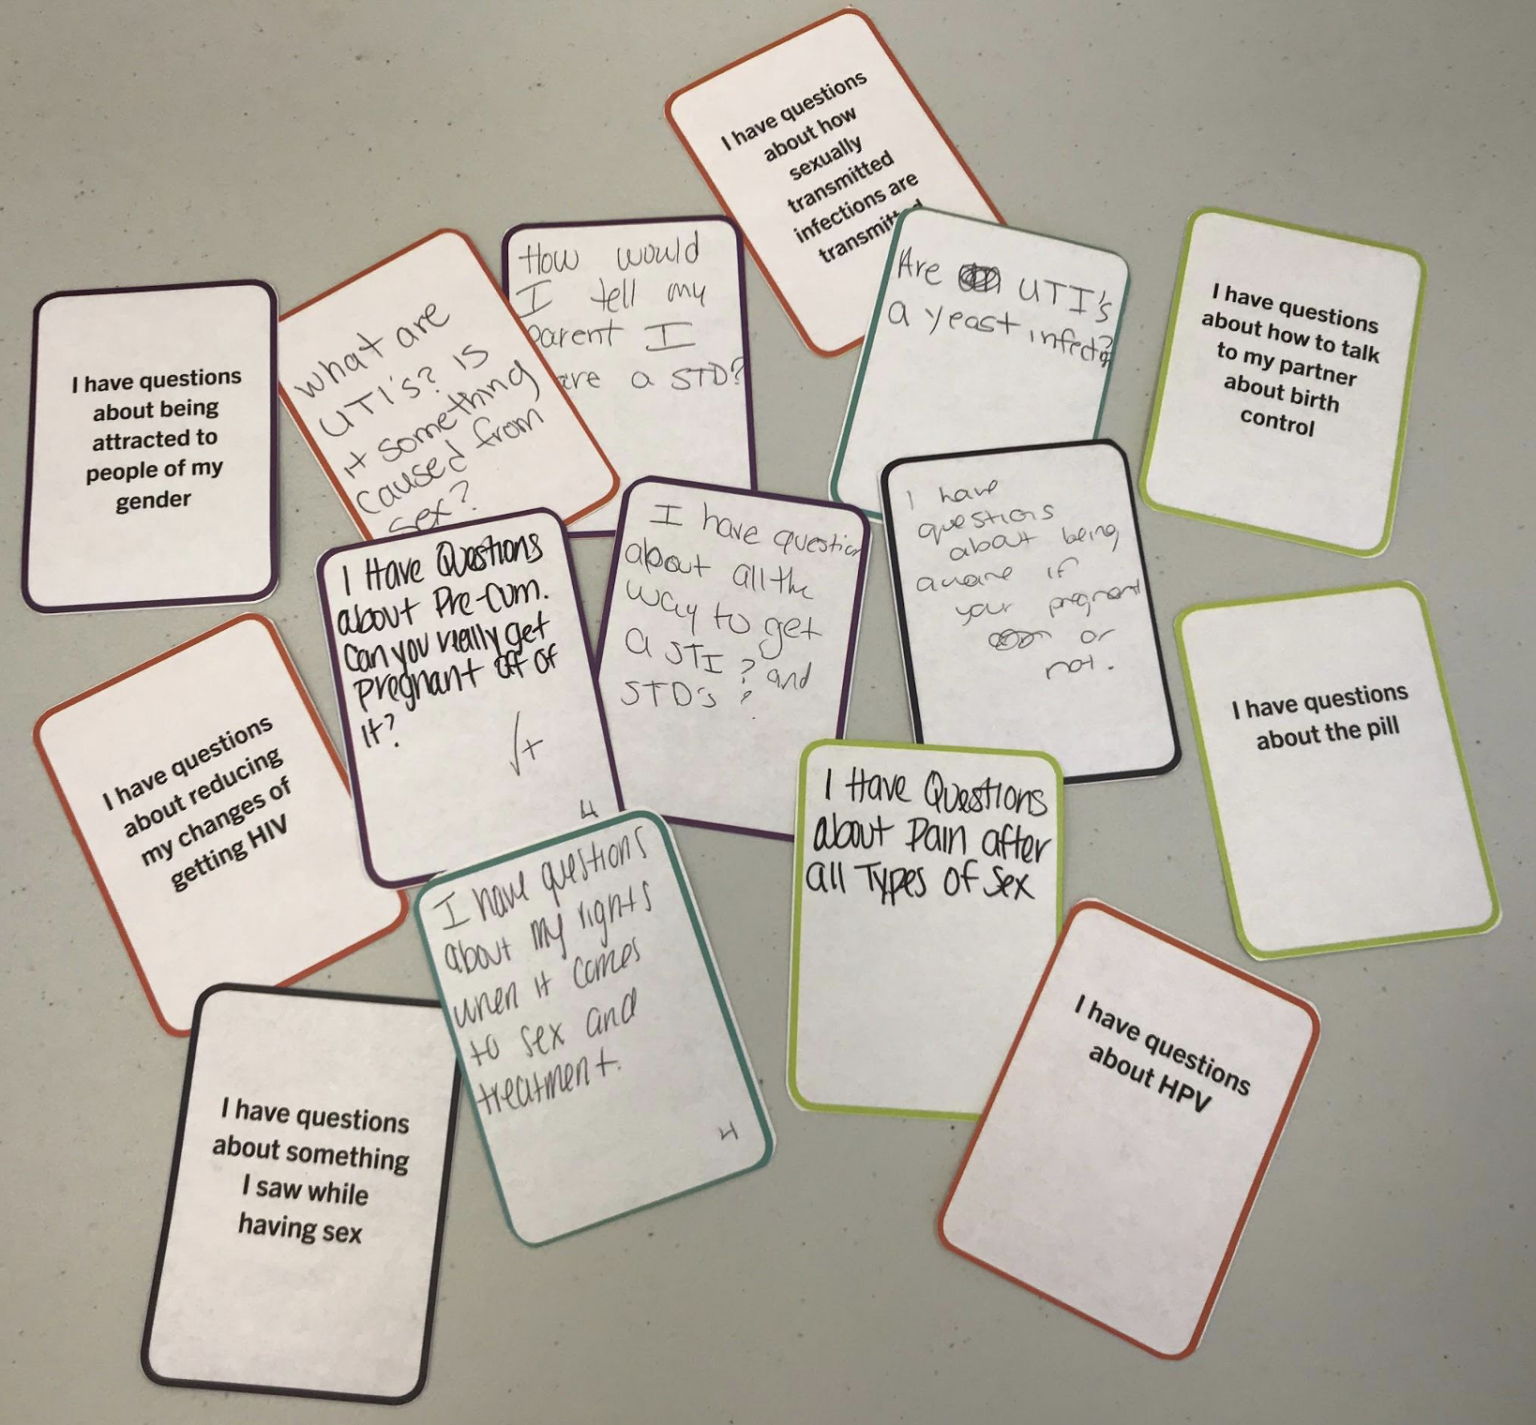 I have questions
about how
sexually
transmitted
infections are
How would
I tell my
parent I
a STD?
Are UTI's
a yeast
I have questions
about how to talk
to my partner
about birth
control
What are
UTI's? is
it something
caused from
sex?
I have questions
about being
attracted to
people of my
gender
I Have Questions
about Pre-cum.
Can you really get
pregnant off of
it?
√+
4
I have question
about all the
way to get
a STI? and
STD's?
I have
questions
about being
aware if
your pregnant
or
not.
I have questions
about the pill
I have questions
about reducing
my changes of
getting HIV
I Have Questions
about Pain after
all Types of sex
I have questions
about my rights
when it comes
to sex and
treatment.
4
I have questions
about HPV
I have questions
about something
I saw while
having sex